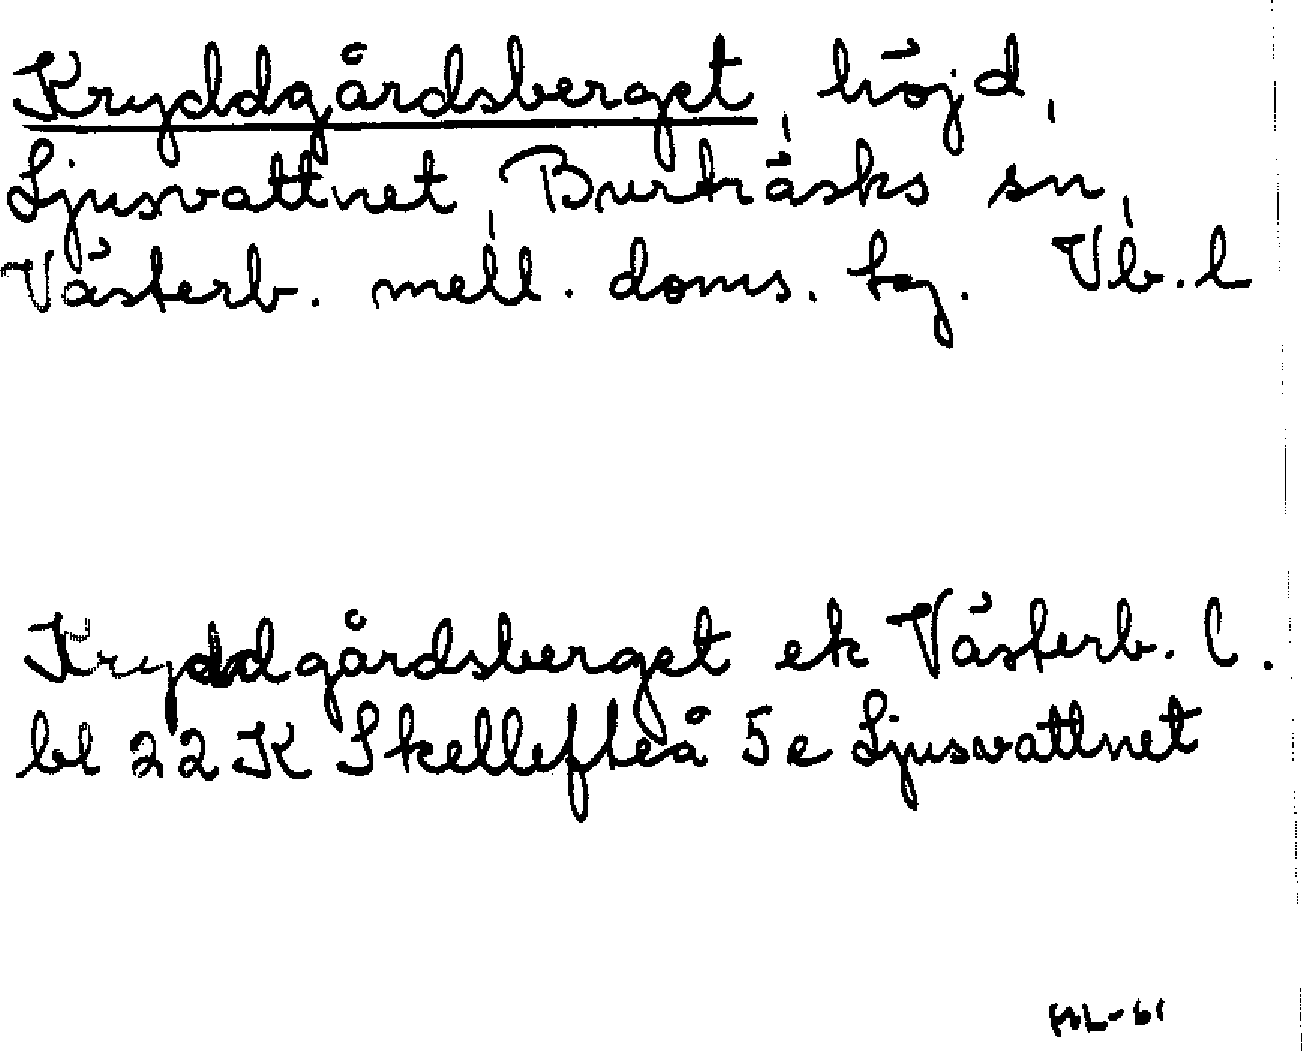 Kryddgårdsberget, höjd,
Ljusvattnet, Burträsks sn,
Västerb. mell. doms. tg. Vb. l
Kryddgårdsberget ek Västerb. l.
bl 22K Skellefteå 5e Ljusvattnet